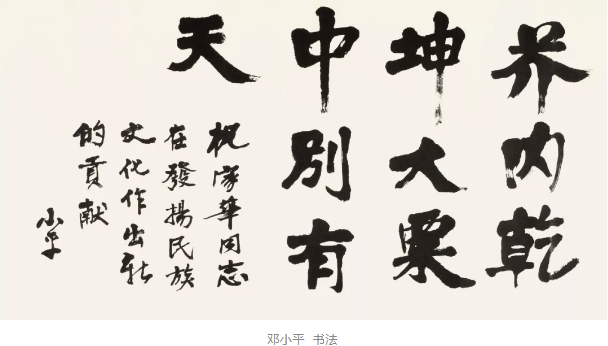 芥内乾
坤大粟
中別有
天
祝家華同志
在發揚民族
文化作出新
的貢献
小平
邓小平 书法